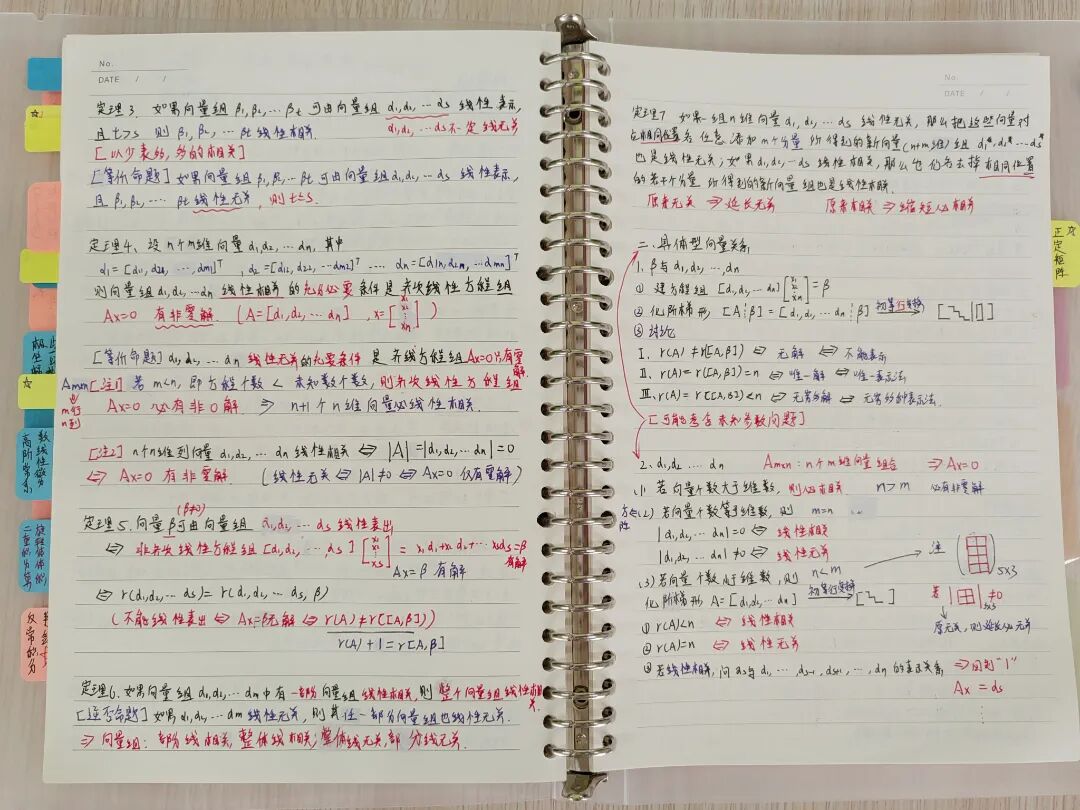 No.
DATE / /
定理3. 如果向量组 β₁,β₂,…βt 可由向量组 α₁,α₂,…αs 线性表示,
且 t>s 则 β₁,β₂,…βt 线性相关. α₁,α₂,…αs不一定线无关
[以少表多,多的相关]
[等价命题] 如果向量组 β₁,β₂…βt 可由向量组 α₁,α₂,…αs 线性表示,
且 β₁,β₂,…βt 线性无关, 则 t≤s.
定理4、设 n个m维向量 α₁,α₂,…αn, 其中
α₁=[α₁₁,α₂₁,…,αm₁]ᵀ, α₂=[α₁₂,α₂₂…αm₂]ᵀ …. αn=[α₁n,α₂n,…αmn]ᵀ
则向量组 α₁,α₂,…αn 线性相关 的充分必要条件是 齐次线性方程组
Ax=0 有非零解. (A=[α₁,α₂,…αn], x=[x₁ x₂ ⋮ xn])
[等价命题] α₁,α₂,…αn 线性无关的充要条件 是 齐线方程组Ax=0只有零解
Am×n [注1] 若 m<n, 即方程个数 < 未知数个数, 则齐次线性方程组
m行n列 Ax=0 必有非0解. ⇒ n+1个n维向量必线性相关.
[注2] n个n维列向量 α₁,α₂,…αn 线性相关 ⇔ |A|=|α₁,α₂,…αn|=0
⇔ Ax=0 有非零解. (线性无关⇔|A|≠0⇔Ax=0仅有零解)
(β≠0)
定理5.向量β可由向量组 α₁,α₂,…αs 线性表出
⇔ 非齐次线性方程组 [α₁,α₂,…,αs][x₁ x₂ ⋮ xs] = x₁α₁+x₂α₂+…xsαs=β 有解
Ax=β 有解
⇔ r(α₁,α₂,…αs)=r(α₁,α₂…αs,β)
(不能线性表出⇔Ax=β无解⇔r(A)≠r([A,β]))
r(A)+1=r[A,β]
定理6.如果向量组α₁,α₂,…αm中有一部分向量组线性相关,则整个向量组线性相关.
[逆否命题]如果α₁,α₂,…αm线性无关,则其任一部分向量组也线性无关.
⇒ 向量组: 部分线相关,整体线相关;整体线无关,部分线无关.
No.
DATE / /
定理7 如果一组n维向量α₁,α₂,…αs 线性无关, 那么把这些向量对
在相同位置各任意添加m个分量 所得到的新向量(n+m维)组 α₁*,α₂*…αs*
也是线性无关;如果α₁,α₂,…αs 线性相关,那么它们各去掉相同位置
的若干个分量 所得到的新向量组也是线性相关.
原来无关 ⇒延长无关 原来相关 ⇒缩短必相关
二、具体型向量关系
1. β与α₁,α₂,…,αn
① 建方程组 [α₁,α₂,…αn][x₁ x₂ ⋮ xn]=β
② 化阶梯形 [A⋮β]=[α₁,α₂,…αn⋮β] 初等行变换→
③ 讨论
Ⅰ. r(A)≠r([A,β]) ⇔ 无解 ⇔ 不能表示
Ⅱ. r(A)=r([A,β])=n ⇔ 唯一解 ⇔ 唯一表示法
Ⅲ. r(A)=r([A,β])<n ⇔ 无穷多解 ⇔ 无穷多种表示法.
[可能考含未知参数问题]
2. α₁,α₂,…αn Am×n: n个m维向量组合 ⇒ Ax=0
(1) 若向量个数大于维数, 则必相关. n>m 必有非零解
方阵(2) 若向量个数等于维数, 则 m=n
|α₁,α₂,…αn|=0 ⇔ 线性相关
|α₁,α₂,…αn|≠0 ⇔ 线性无关
(3)若向量个数小于维数, 则 n<m
化阶梯形 A=[α₁,α₂,…αn] 初等行变换→
注 5×3
若 | |3×3≠0
原无关,则延长必无关
① r(A)<n ⇔ 线性相关
② r(A)=n ⇔ 线性无关
③ 若线性相关,问αs与α₁,…,αs-1,αs+1,…,αn的表示关系 ⇒回到"1"
Ax=αs
正定矩阵